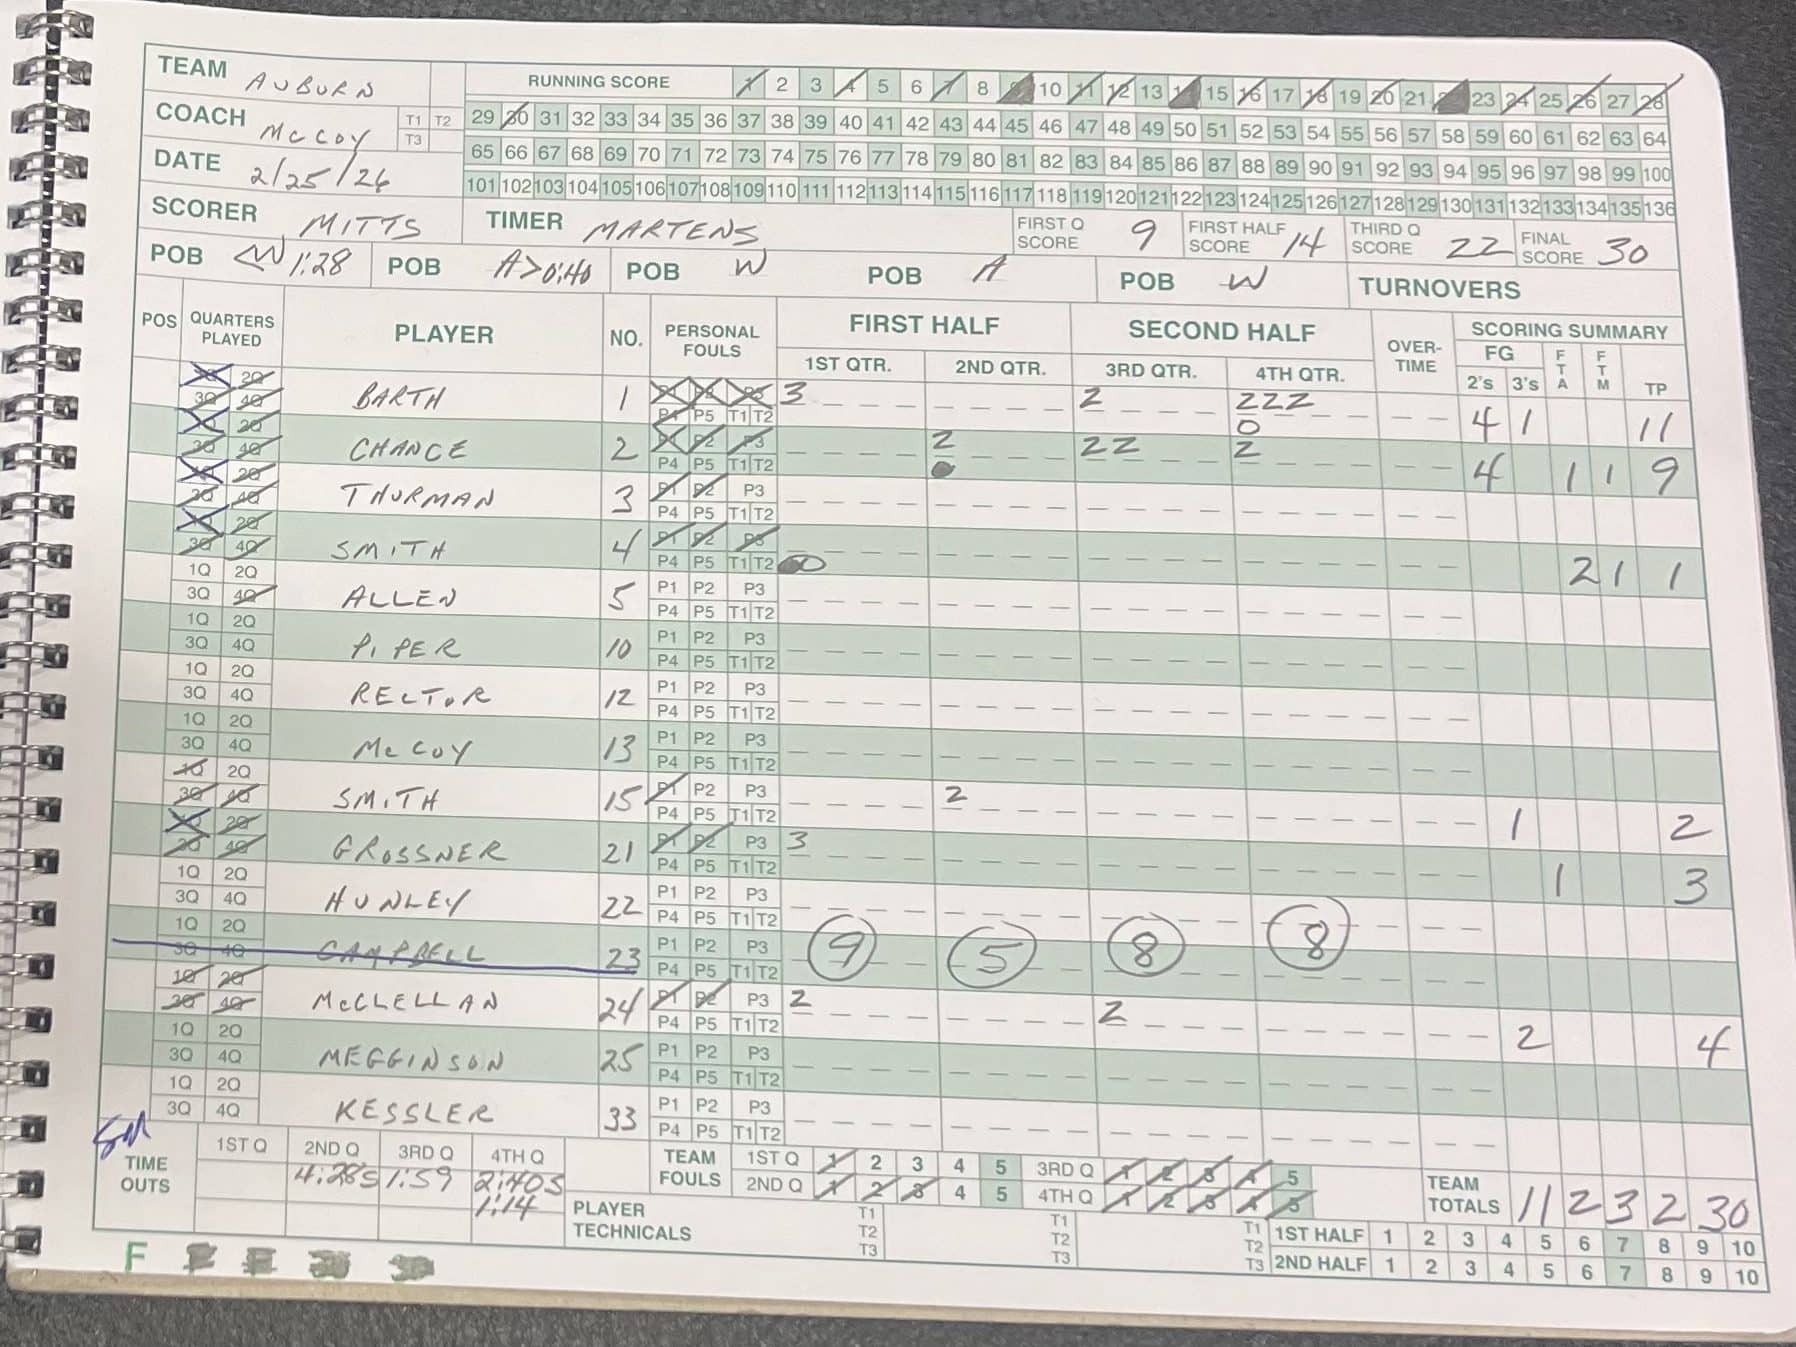 TEAM AUBURN RUNNING SCORE 1 2 3 4 5 6 7 8 9 10 11 12 13 14 15 16 17 18 19 20 21 22 23 24 25 26 27 28
COACH McCOY T1 T2 T3 29 30 31 32 33 34 35 36 37 38 39 40 41 42 43 44 45 46 47 48 49 50 51 52 53 54 55 56 57 58 59 60 61 62 63 64
65 66 67 68 69 70 71 72 73 74 75 76 77 78 79 80 81 82 83 84 85 86 87 88 89 90 91 92 93 94 95 96 97 98 99 100
DATE 2/25/26 101 102 103 104 105 106 107 108 109 110 111 112 113 114 115 116 117 118 119 120 121 122 123 124 125 126 127 128 129 130 131 132 133 134 135 136
SCORER MITTS TIMER MARTENS FIRST Q SCORE 9 FIRST HALF SCORE 14 THIRD Q SCORE 22 FINAL SCORE 30
POB <W 1:28 POB A>0:40 POB W POB A POB W TURNOVERS
POS QUARTERS PLAYED PLAYER NO. PERSONAL FOULS FIRST HALF SECOND HALF OVER-TIME SCORING SUMMARY
1ST QTR. 2ND QTR. 3RD QTR. 4TH QTR. FG 2's 3's FTA FTM TP
1Q 2Q BARTH 1 P1 P2 P3 3 2 222 4 1 11
3Q 4Q P4 P5 T1 T2 0
1Q 2Q CHANCE 2 P1 P2 P3 2 22 2 4 1 1 9
3Q 4Q P4 P5 T1 T2
1Q 2Q THURMAN 3 P1 P2 P3
3Q 4Q P4 P5 T1 T2
1Q 2Q SMITH 4 P1 P2 P3
3Q 4Q P4 P5 T1 T2 0 2 1 1
1Q 2Q ALLEN 5 P1 P2 P3
3Q 4Q P4 P5 T1 T2
1Q 2Q PIPER 10 P1 P2 P3
3Q 4Q P4 P5 T1 T2
1Q 2Q RECTOR 12 P1 P2 P3
3Q 4Q P4 P5 T1 T2
1Q 2Q McCOY 13 P1 P2 P3
3Q 4Q P4 P5 T1 T2
1Q 2Q SMITH 15 P1 P2 P3 2 1 2
3Q 4Q P4 P5 T1 T2
1Q 2Q GROSSNER 21 P1 P2 P3 3 1 3
3Q 4Q P4 P5 T1 T2
1Q 2Q HUNLEY 22 P1 P2 P3
3Q 4Q P4 P5 T1 T2
1Q 2Q CAMPBELL 23 P1 P2 P3 9 5 8 8
3Q 4Q P4 P5 T1 T2
1Q 2Q McCLELLAN 24 P1 P2 P3 2 2 2 4
3Q 4Q P4 P5 T1 T2
1Q 2Q MEGGINSON 25 P1 P2 P3
3Q 4Q P4 P5 T1 T2
1Q 2Q KESSLER 33 P1 P2 P3
3Q 4Q P4 P5 T1 T2
TIME OUTS 1ST Q 2ND Q 3RD Q 4TH Q TEAM FOULS 1ST Q 1 2 3 4 5 3RD Q 1 2 3 4 5 TEAM TOTALS 11 2 3 2 30
4:28s 1:59 2:40s 2ND Q 1 2 3 4 5 4TH Q 1 2 3 4 5
1:14 PLAYER TECHNICALS T1 T2 T3 T1 T2 T3 T1 T2 T3 1ST HALF 1 2 3 4 5 6 7 8 9 10
2ND HALF 1 2 3 4 5 6 7 8 9 10
F